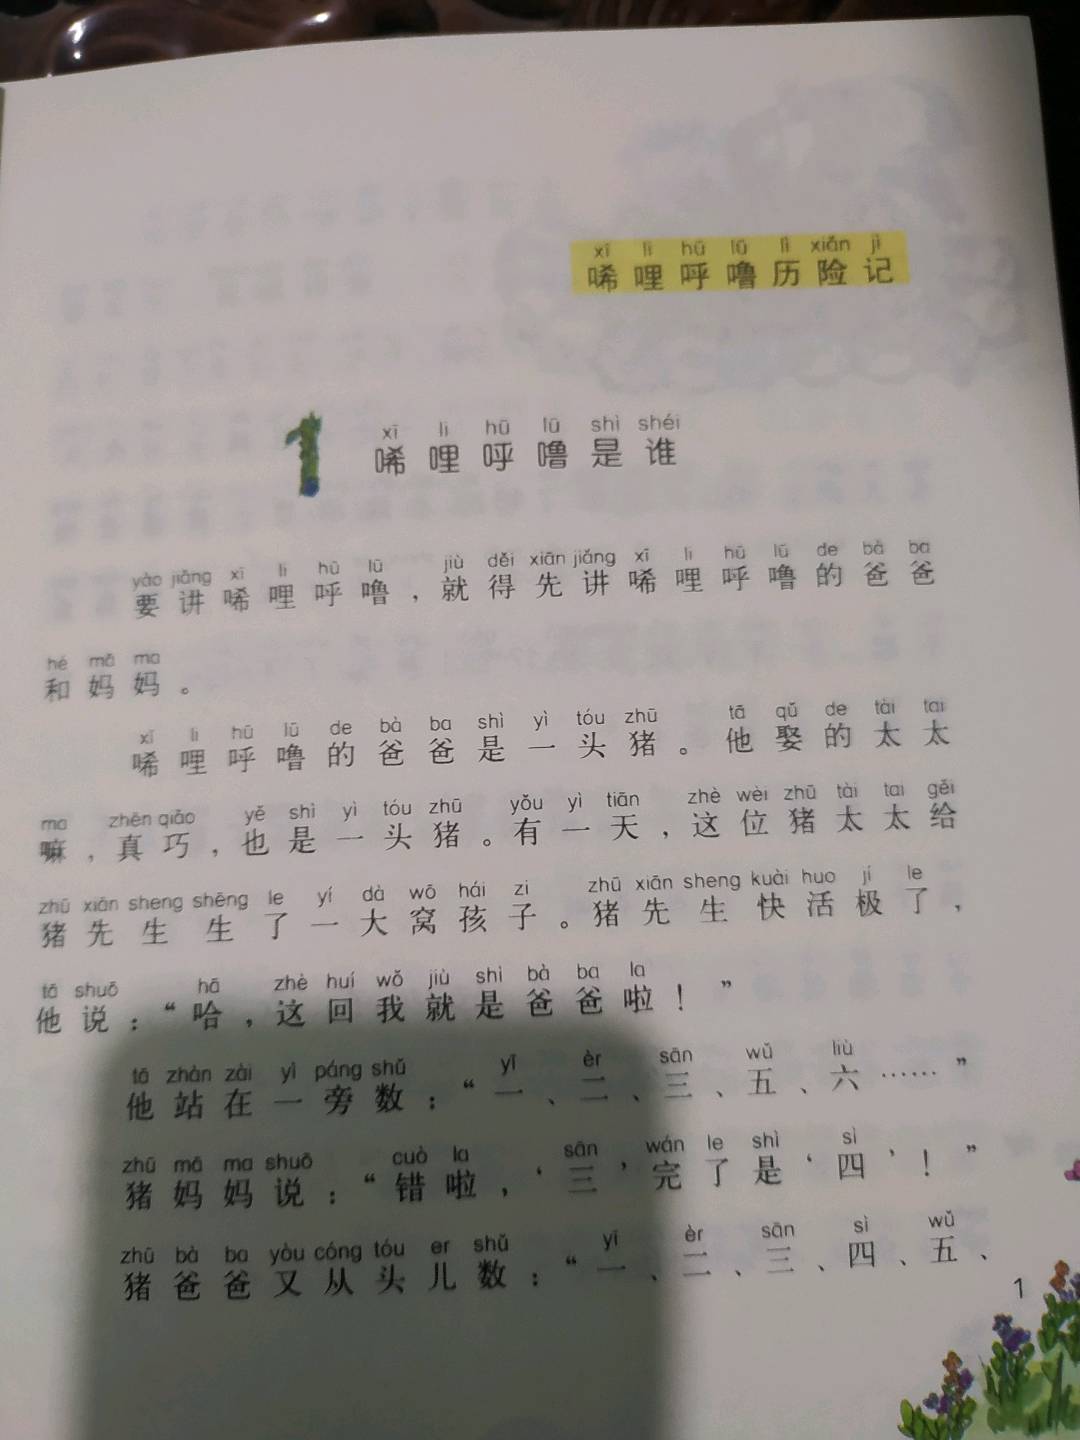 xī li hū lū lì xiǎn jì
唏哩呼噜历险记
1
xī li hū lū shì shéi
唏哩呼噜是谁
yào jiǎng xī li hū lū jiù děi xiān jiǎng xī li hū lū de bà ba
要讲唏哩呼噜，就得先讲唏哩呼噜的爸爸
hé mā ma
和妈妈。
xī li hū lū de bà ba shì yì tóu zhū tā qǔ de tài tai
唏哩呼噜的爸爸是一头猪。他娶的太太
ma zhēn qiǎo yě shì yì tóu zhū yǒu yì tiān zhè wèi zhū tài tai gěi
嘛，真巧，也是一头猪。有一天，这位猪太太给
zhū xiān sheng shēng le yí dà wō hái zi zhū xiān sheng kuài huo jí le
猪先生生了一大窝孩子。猪先生快活极了，
tā shuō hā zhè huí wǒ jiù shì bà ba la
他说：“哈，这回我就是爸爸啦！”
tā zhàn zài yì páng shǔ yī èr sān wǔ liù
他站在一旁数：“一、二、三、五、六……”
zhū mā ma shuō cuò la sān wán le shì sì
猪妈妈说：“错啦，‘三’完了是‘四’！”
zhū bà ba yòu cóng tóu er shǔ yī èr sān sì wǔ
猪爸爸又从头儿数：“一、二、三、四、五、
1